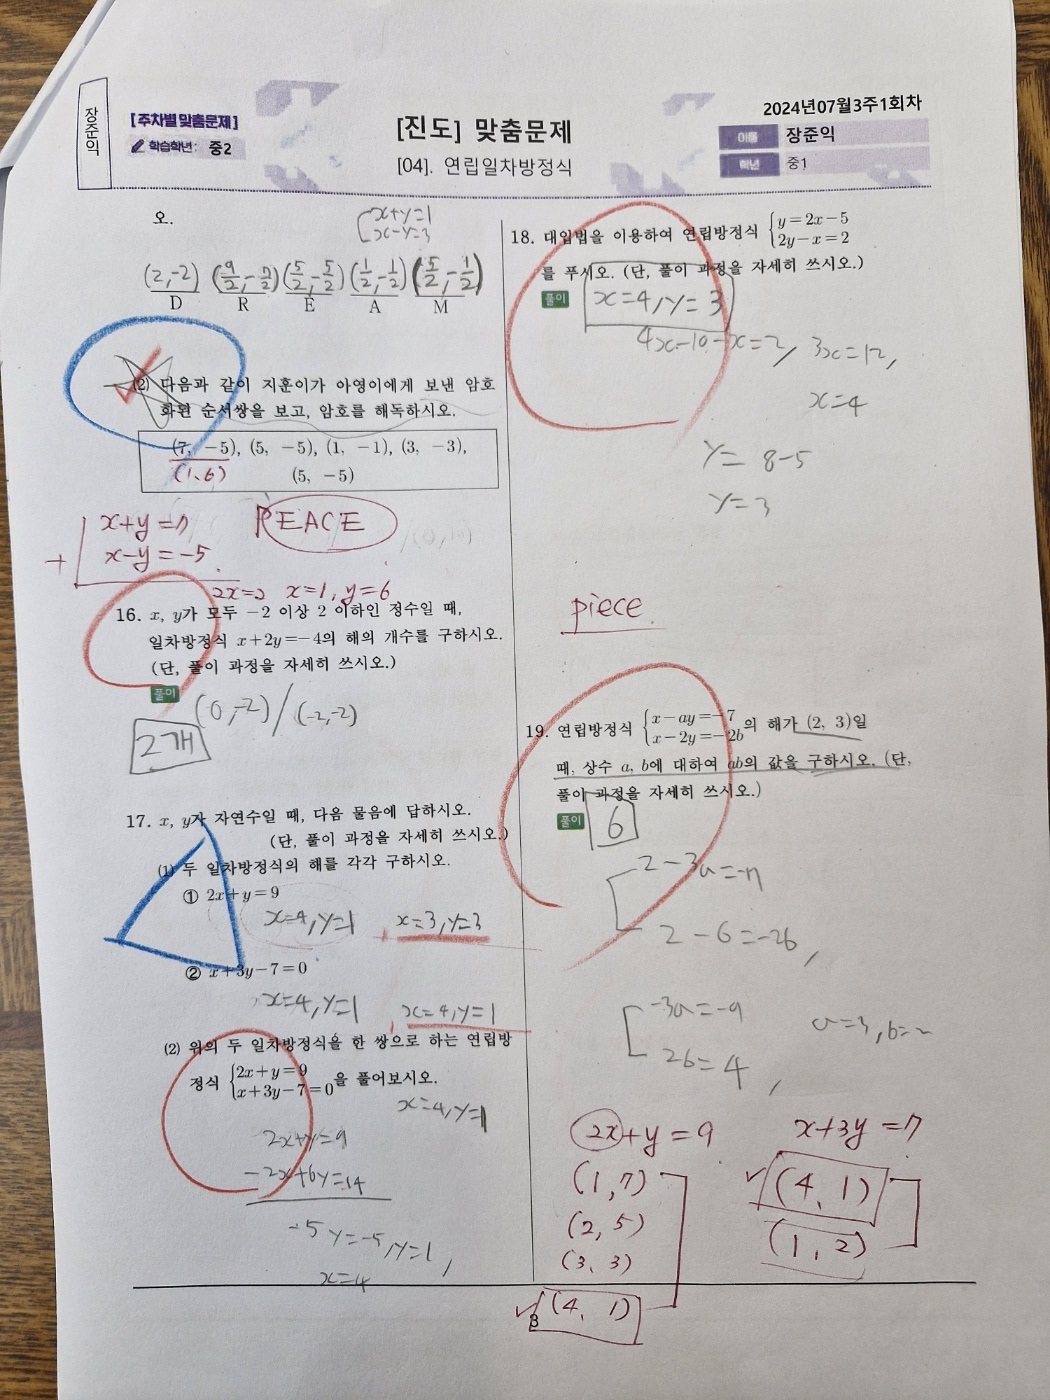 장준익
[주차별 맞춤문제]
학습학년: 중2
[진도] 맞춤문제
[04]. 연립일차방정식
2024년07월3주1회차
이름 장준익
학년 중1
오.
x+y=1
x-y=3
(2,-2) (9/2,-7/2) (5/2,-5/2) (1/2,-1/2) (5/2,-1/2)
D R E A M
(2) 다음과 같이 지훈이가 아영이에게 보낸 암호
화된 순서쌍을 보고, 암호를 해독하시오.
(7, -5), (5, -5), (1, -1), (3, -3),
(5, -5)
(1, 6)
x+y=7
PEACE
+ x-y=-5
2x=2 x=1, y=6
16. x, y가 모두 -2 이상 2 이하인 정수일 때,
일차방정식 x+2y=-4의 해의 개수를 구하시오.
(단, 풀이 과정을 자세히 쓰시오.)
풀이
(0,-2) / (-2,-2)
2개
17. x, y가 자연수일 때, 다음 물음에 답하시오.
(단, 풀이 과정을 자세히 쓰시오.)
(1) 두 일차방정식의 해를 각각 구하시오.
① 2x+y=9
x=4, y=1 , x=3, y=3
② x+3y-7=0
x=4, y=1 , x=4, y=1
(2) 위의 두 일차방정식을 한 쌍으로 하는 연립방
정식 {2x+y=9
x+3y-7=0 을 풀어보시오.
x=4, y=1
2x+y=9
-2x+6y=14
-5y=-5, y=1,
x=4
18. 대입법을 이용하여 연립방정식 {y=2x-5
2y-x=2
를 푸시오. (단, 풀이 과정을 자세히 쓰시오.)
풀이
x=4, y=3
4x-10-x=2, 3x=12,
x=4
y= 8-5
y=3
piece
19. 연립방정식 {x-ay=-7
x-2y=-2b 의 해가 (2, 3)일
때, 상수 a, b에 대하여 ab의 값을 구하시오. (단,
풀이 과정을 자세히 쓰시오.)
풀이
6
2-3a=-7
2-6=-2b,
-3a=-9
a=3, b=2
2b=4,
2x+y=9
(1, 7)
(2, 5)
(3, 3)
(4, 1)
x+3y=7
(4, 1)
(1, 2)
3